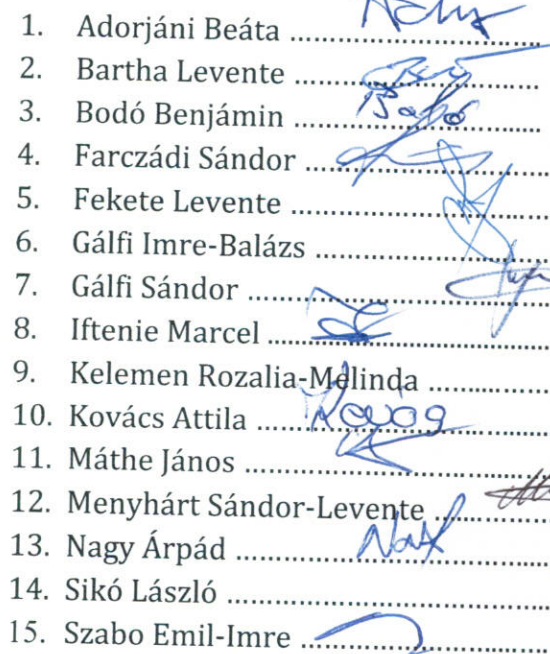 1. Adorjáni Beáta ................................................
2. Bartha Levente ................................................
3. Bodó Benjámin ................................................ Bodó
4. Farczádi Sándor ................................................
5. Fekete Levente ................................................
6. Gálfi Imre-Balázs ................................................
7. Gálfi Sándor ................................................
8. Iftenie Marcel ................................................
9. Kelemen Rozalia-Melinda ......................
10. Kovács Attila ................................................ Kovács
11. Máthe János ................................................
12. Menyhárt Sándor-Levente ......................
13. Nagy Árpád ................................................
14. Sikó László ................................................
15. Szabo Emil-Imre ................................................